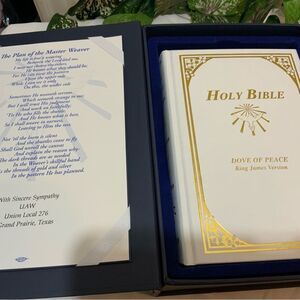 The Plan of the Master Weaver
My life is but a weaving
Between the Lord and me.
I may not choose the colors,
He knows what they should be.
For He can view the pattern
Upon the upper side
While I can see it only
On this, the under side.
Sometimes He weaveth sorrow,
Which seemeth strange to me;
But I will trust His judgment
And work on faithfully.
'Tis He who fills the shuttle;
And He knows what is best,
So I shall weave in earnest,
Leaving to Him the rest.
Not 'til the loom is silent
And the shuttles cease to fly
Shall God unroll the canvas
And explain the reason why-
The dark threads are as needed
In the Weaver's skillful hand
As the threads of gold and silver
In the pattern He has planned.
With Sincere Sympathy
UAW
Union Local 276
Grand Prairie, Texas
HOLY BIBLE
DOVE OF PEACE
King James Version